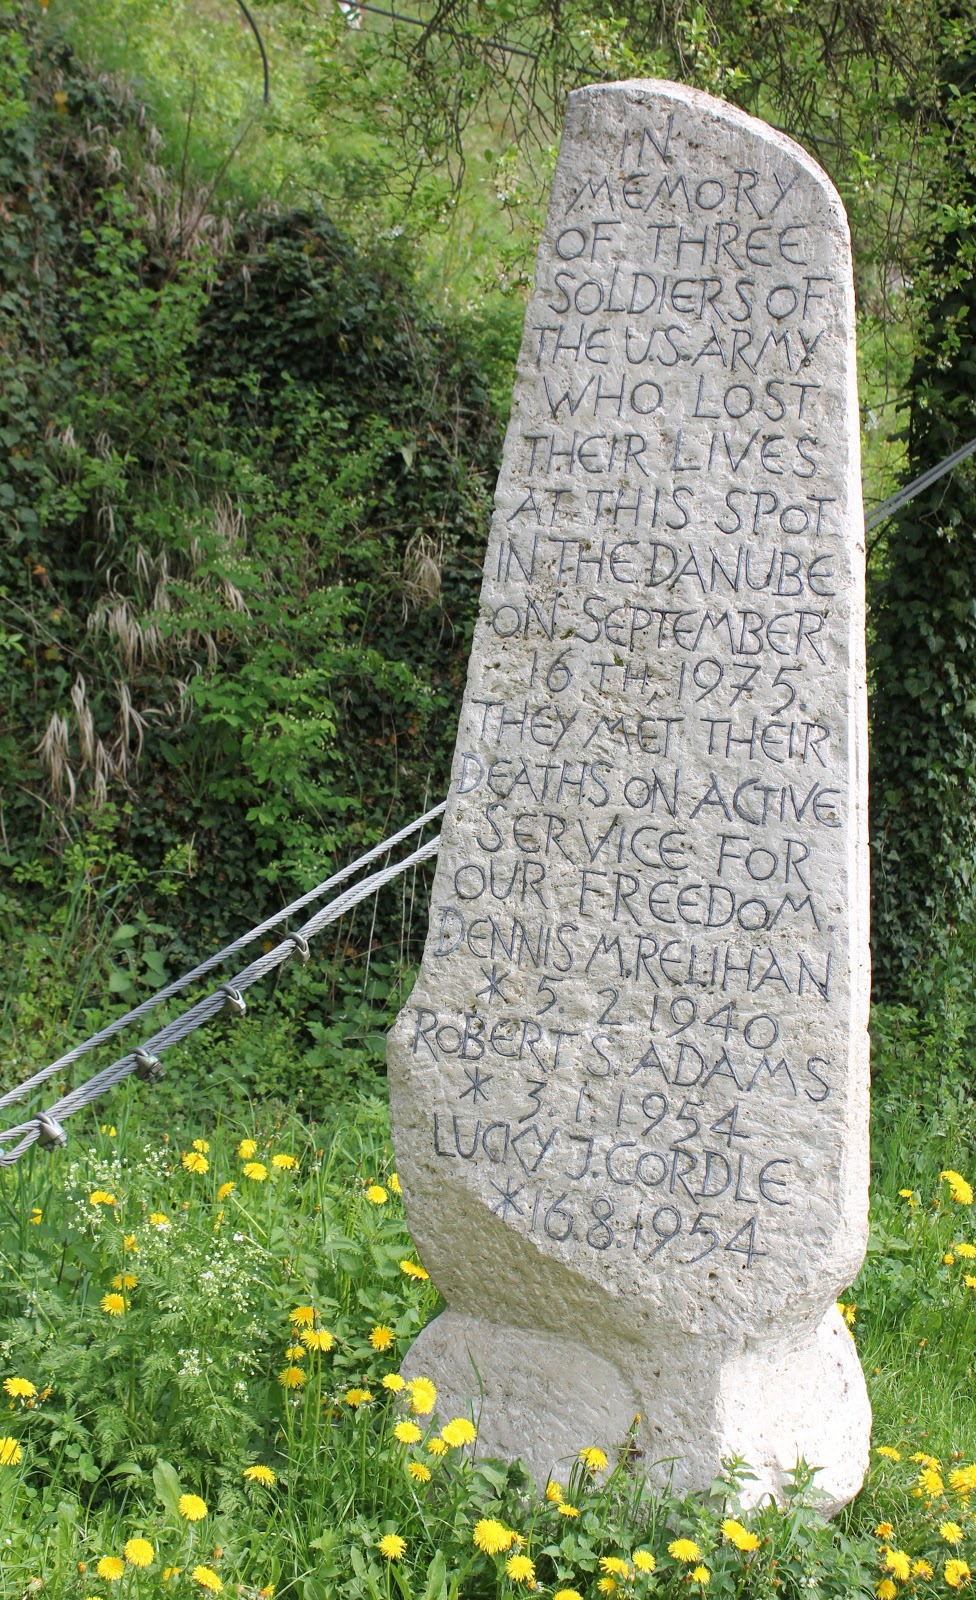 IN
MEMORY
OF THREE
SOLDIERS OF
THE U.S. ARMY
WHO LOST
THEIR LIVES
AT THIS SPOT
IN THE DANUBE
ON SEPTEMBER
16 TH, 1975.
THEY MET THEIR
DEATHS ON ACTIVE
SERVICE FOR
OUR FREEDOM.
DENNIS M. RELIHAN
* 5. 2. 1940
ROBERT S. ADAMS
* 3. 1. 1954
LUCKY J. CORDLE
* 16.8.1954